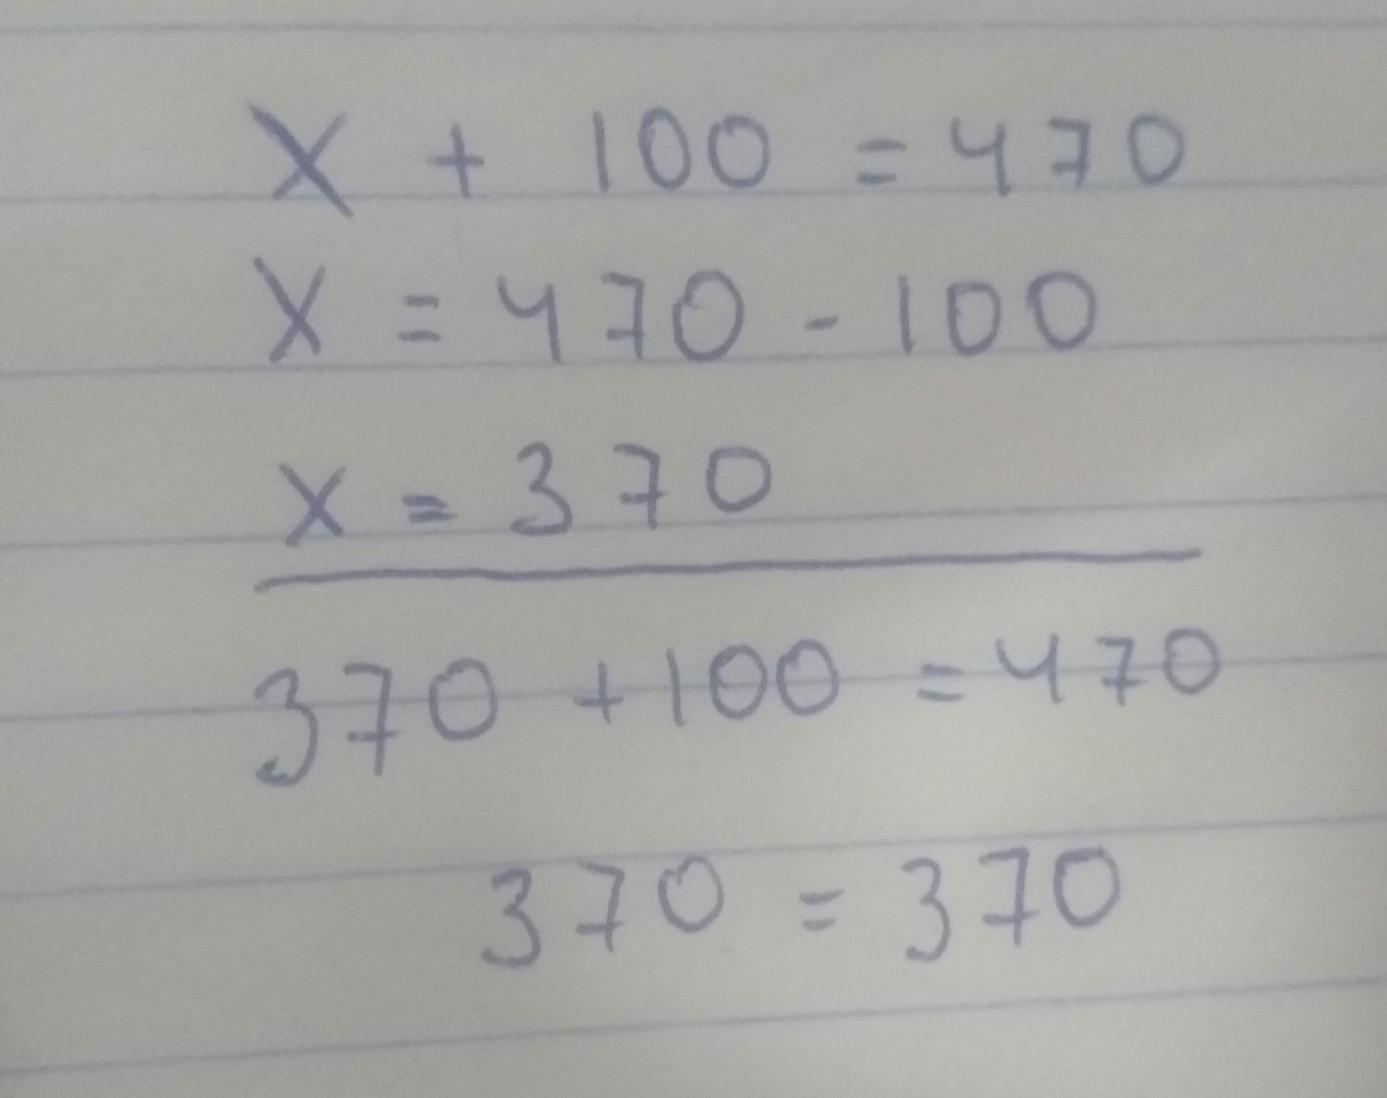 X + 100 = 470
X = 470 - 100
x = 370
370 + 100 = 470
370 = 370